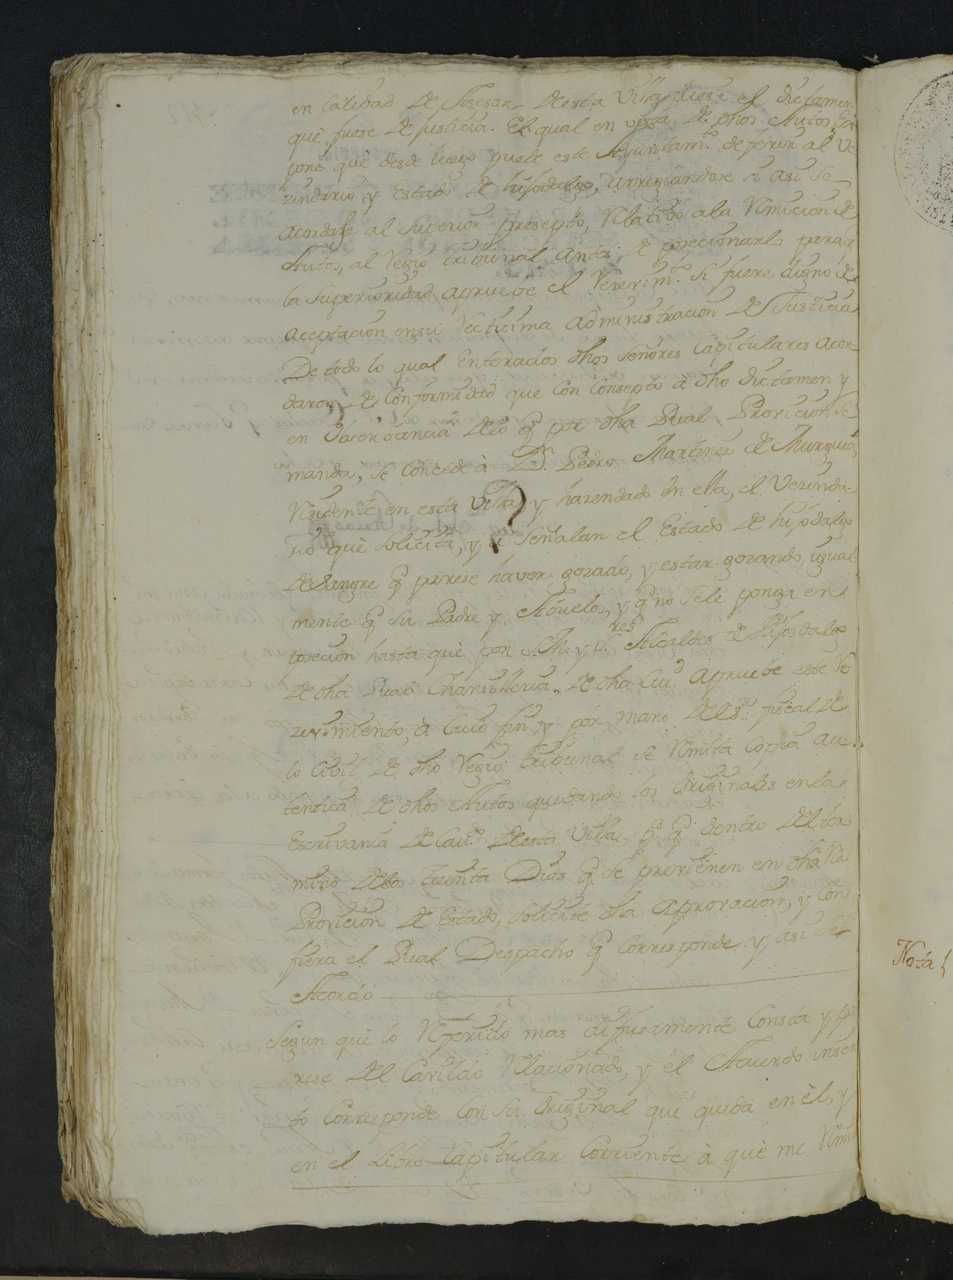 en Calidad de Asesor desta Villa diese el dictamen
que fuese de Justicia. El qual en vista de dhos Autos, Ex
pone que desde luego puede este Ayuntamto. deferir al Ve
zindario y Estado de hijodalgo, arreglandose si asi se
acordase al Superior precepto, Relatibo a la Remicion de
Autos, al Regio tribunal antes de posecionarlo para q
la Superioridad aprueve el Reverim.to si fuere digno de
aceptacion en su rectisima administracion de Justicia
De todo lo qual Enterados dhos Señores Capitulares acor-
daron de Conformidad que con Consepto à dho dictamen y
en observancia de lo q por dha Rual Provicion se
manda, se Concede à Dn. Pedro Martinez de Murguia
Residente en esta Villa y hazendado en ella, el Vezinda-
rio què solicita, y le Señalan el Estado de hijodalgo
de Sangre q parese haver gozado, y estar gozando, igual
mente q su Padre y Abuelos, y q no se le ponga en
posecion hasta què por los Sres. Alcaldes de hijosdalgo
de dha Rual Chansilleria de dha Ciud Apruebe este Re
zevimiento, à Cuio fin y por mano del Sr. fiscal de
lo Cibil de dho Regio tribunal se Remita Copia au-
tentica de dhos Autos quedando los Originales en la
Escrivania de Cavdo. desta Villa, p.a q dentro del ter
mino de los treinta Dias q se previenen en dha Rl
Provicion de Estado, solicite dha aprovacion, y con
fiera el Rual Despacho q Corresponde y asi se
Acordò
Segun què lo Referido mas difusamente Consta y pa
rese del Cavildo Relacionado, y él Acuerdo inser
to Corresponde Con su Original què queda en èl, y
en el Libro Capitular Corriente à què me Remi
Nota